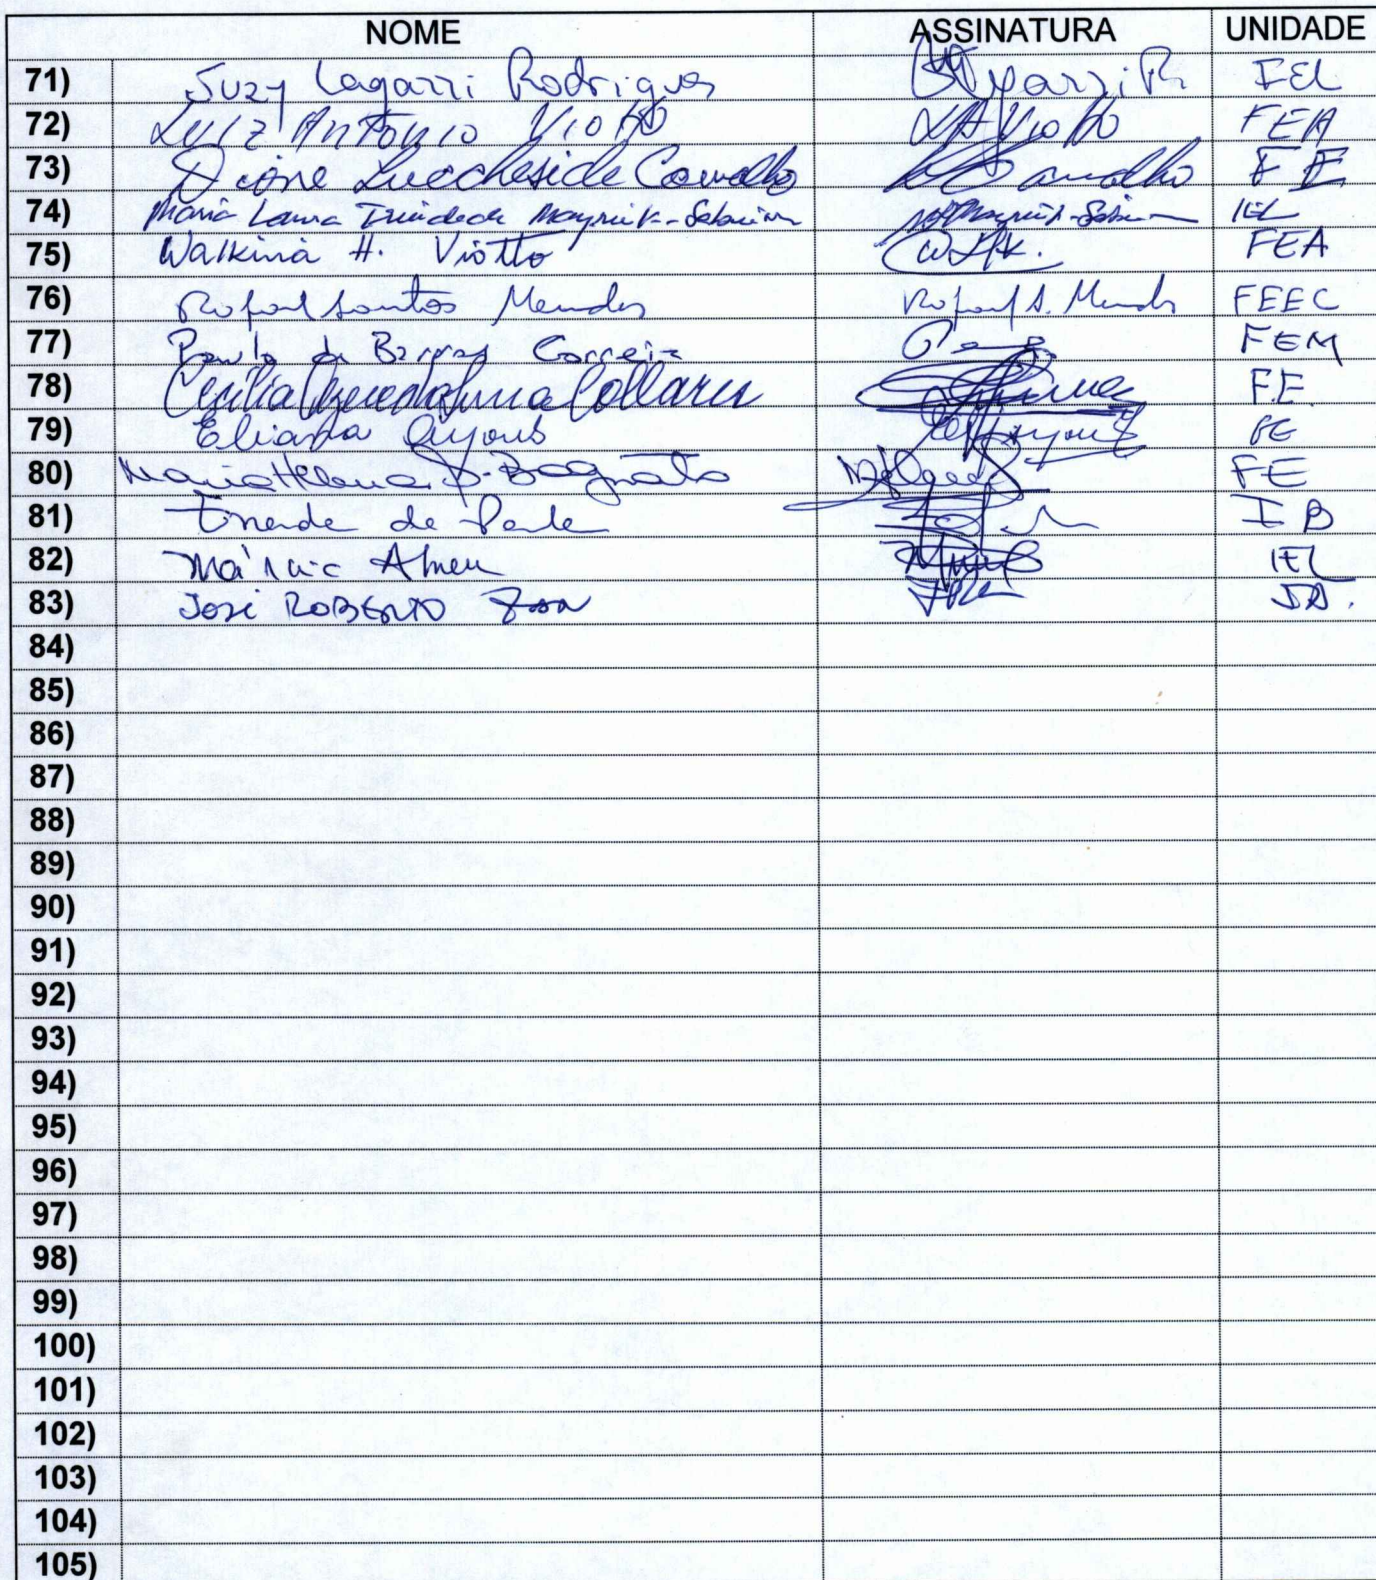 NOME ASSINATURA UNIDADE
71) Suzy Lagazzi Rodrigues IEL
72) Luiz Antonio Viotto LAViotto FEA
73) Dione Lucchesi de Carvalho Carvalho FE
74) Maria Laura Trindade Mayrink-Sabinson Mayrink-Sabinson IEL
75) Walkiria H. Viotto FEA
76) Rafael Santos Mendes Rafael S. Mendes FEEC
77) Paulo de Barros Correia FEM
78) Cecília Azevedo Lima Collares F.E.
79) Eliana Ayoub FE
80) Maria Helena S. Bagnato FE
81) de Paula IB
82) Márcia Abreu IEL
83) José ROBERTO ZAN
84)
85)
86)
87)
88)
89)
90)
91)
92)
93)
94)
95)
96)
97)
98)
99)
100)
101)
102)
103)
104)
105)